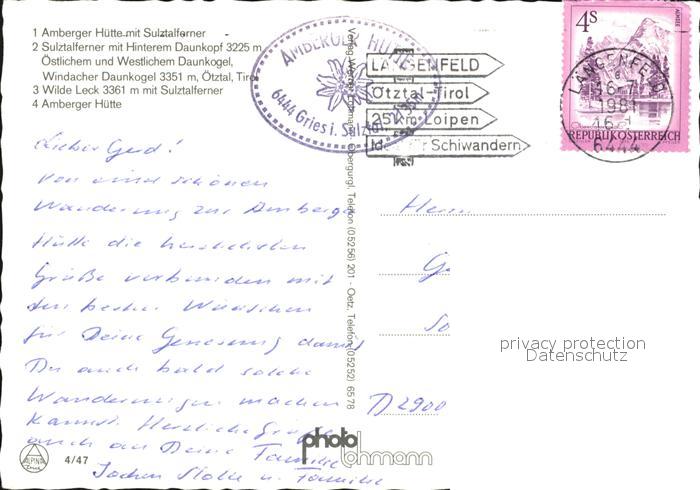 1 Amberger Hütte mit Sulztalferner
2 Sulztalferner mit Hinterem Daunkopf 3225 m,
Östlichem und Westlichem Daunkogel,
Windacher Daunkogel 3351 m, Ötztal, Tirol
3 Wilde Leck 3361 m mit Sulztalferner
4 Amberger Hütte
AMBERGER HÜTTE
6444 Gries i. Sulztal
LÄNGENFELD
Ötztal-Tirol
25 km Loipen
für Schiwandern
4S
REPUBLIK ÖSTERREICH
LÄNGENFELD
16-7
1981
6444
Lieber Gerd!
Von einer schönen
Wanderung zur Amberger
Hütte die herzlichsten
Grüße verbunden mit
den besten Wünschen
für Deine Genesung damit
Du auch bald solche
Wanderungen machen
kannst. Herzliche Grüße
auch an Deine Familie
Jochen u. Familie
Herrn
D 2900
Obergurgl, Telefon (05256) 201 - Oetz, Telefon (05252) 6578
privacy protection
Datenschutz
photo
lohmann
ALPINA
4/47